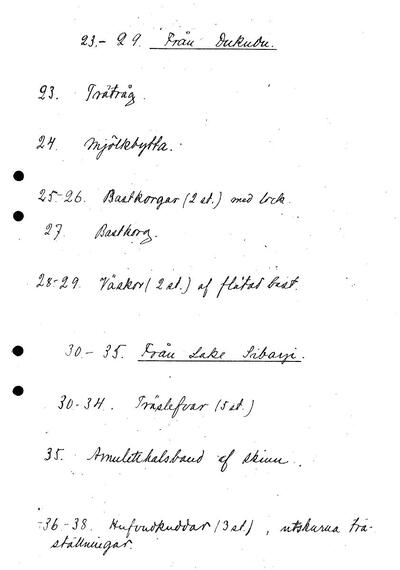 23.- 29. Från Dukudu.
23. Trätråg.
24. Mjölkbytta.
25-26. Bastkorgar (2 st.) med lock.
27. Bastkorg.
28-29. Väskor (2 st.) af flätad bast.
30- 35. Från Lake Sibayi.
30-34. Träslefvar (5 st.)
35. Amuletthalsband af skinn.
36-38. Hufvudkuddar (3 st.), utskurna trä-
ställningar.